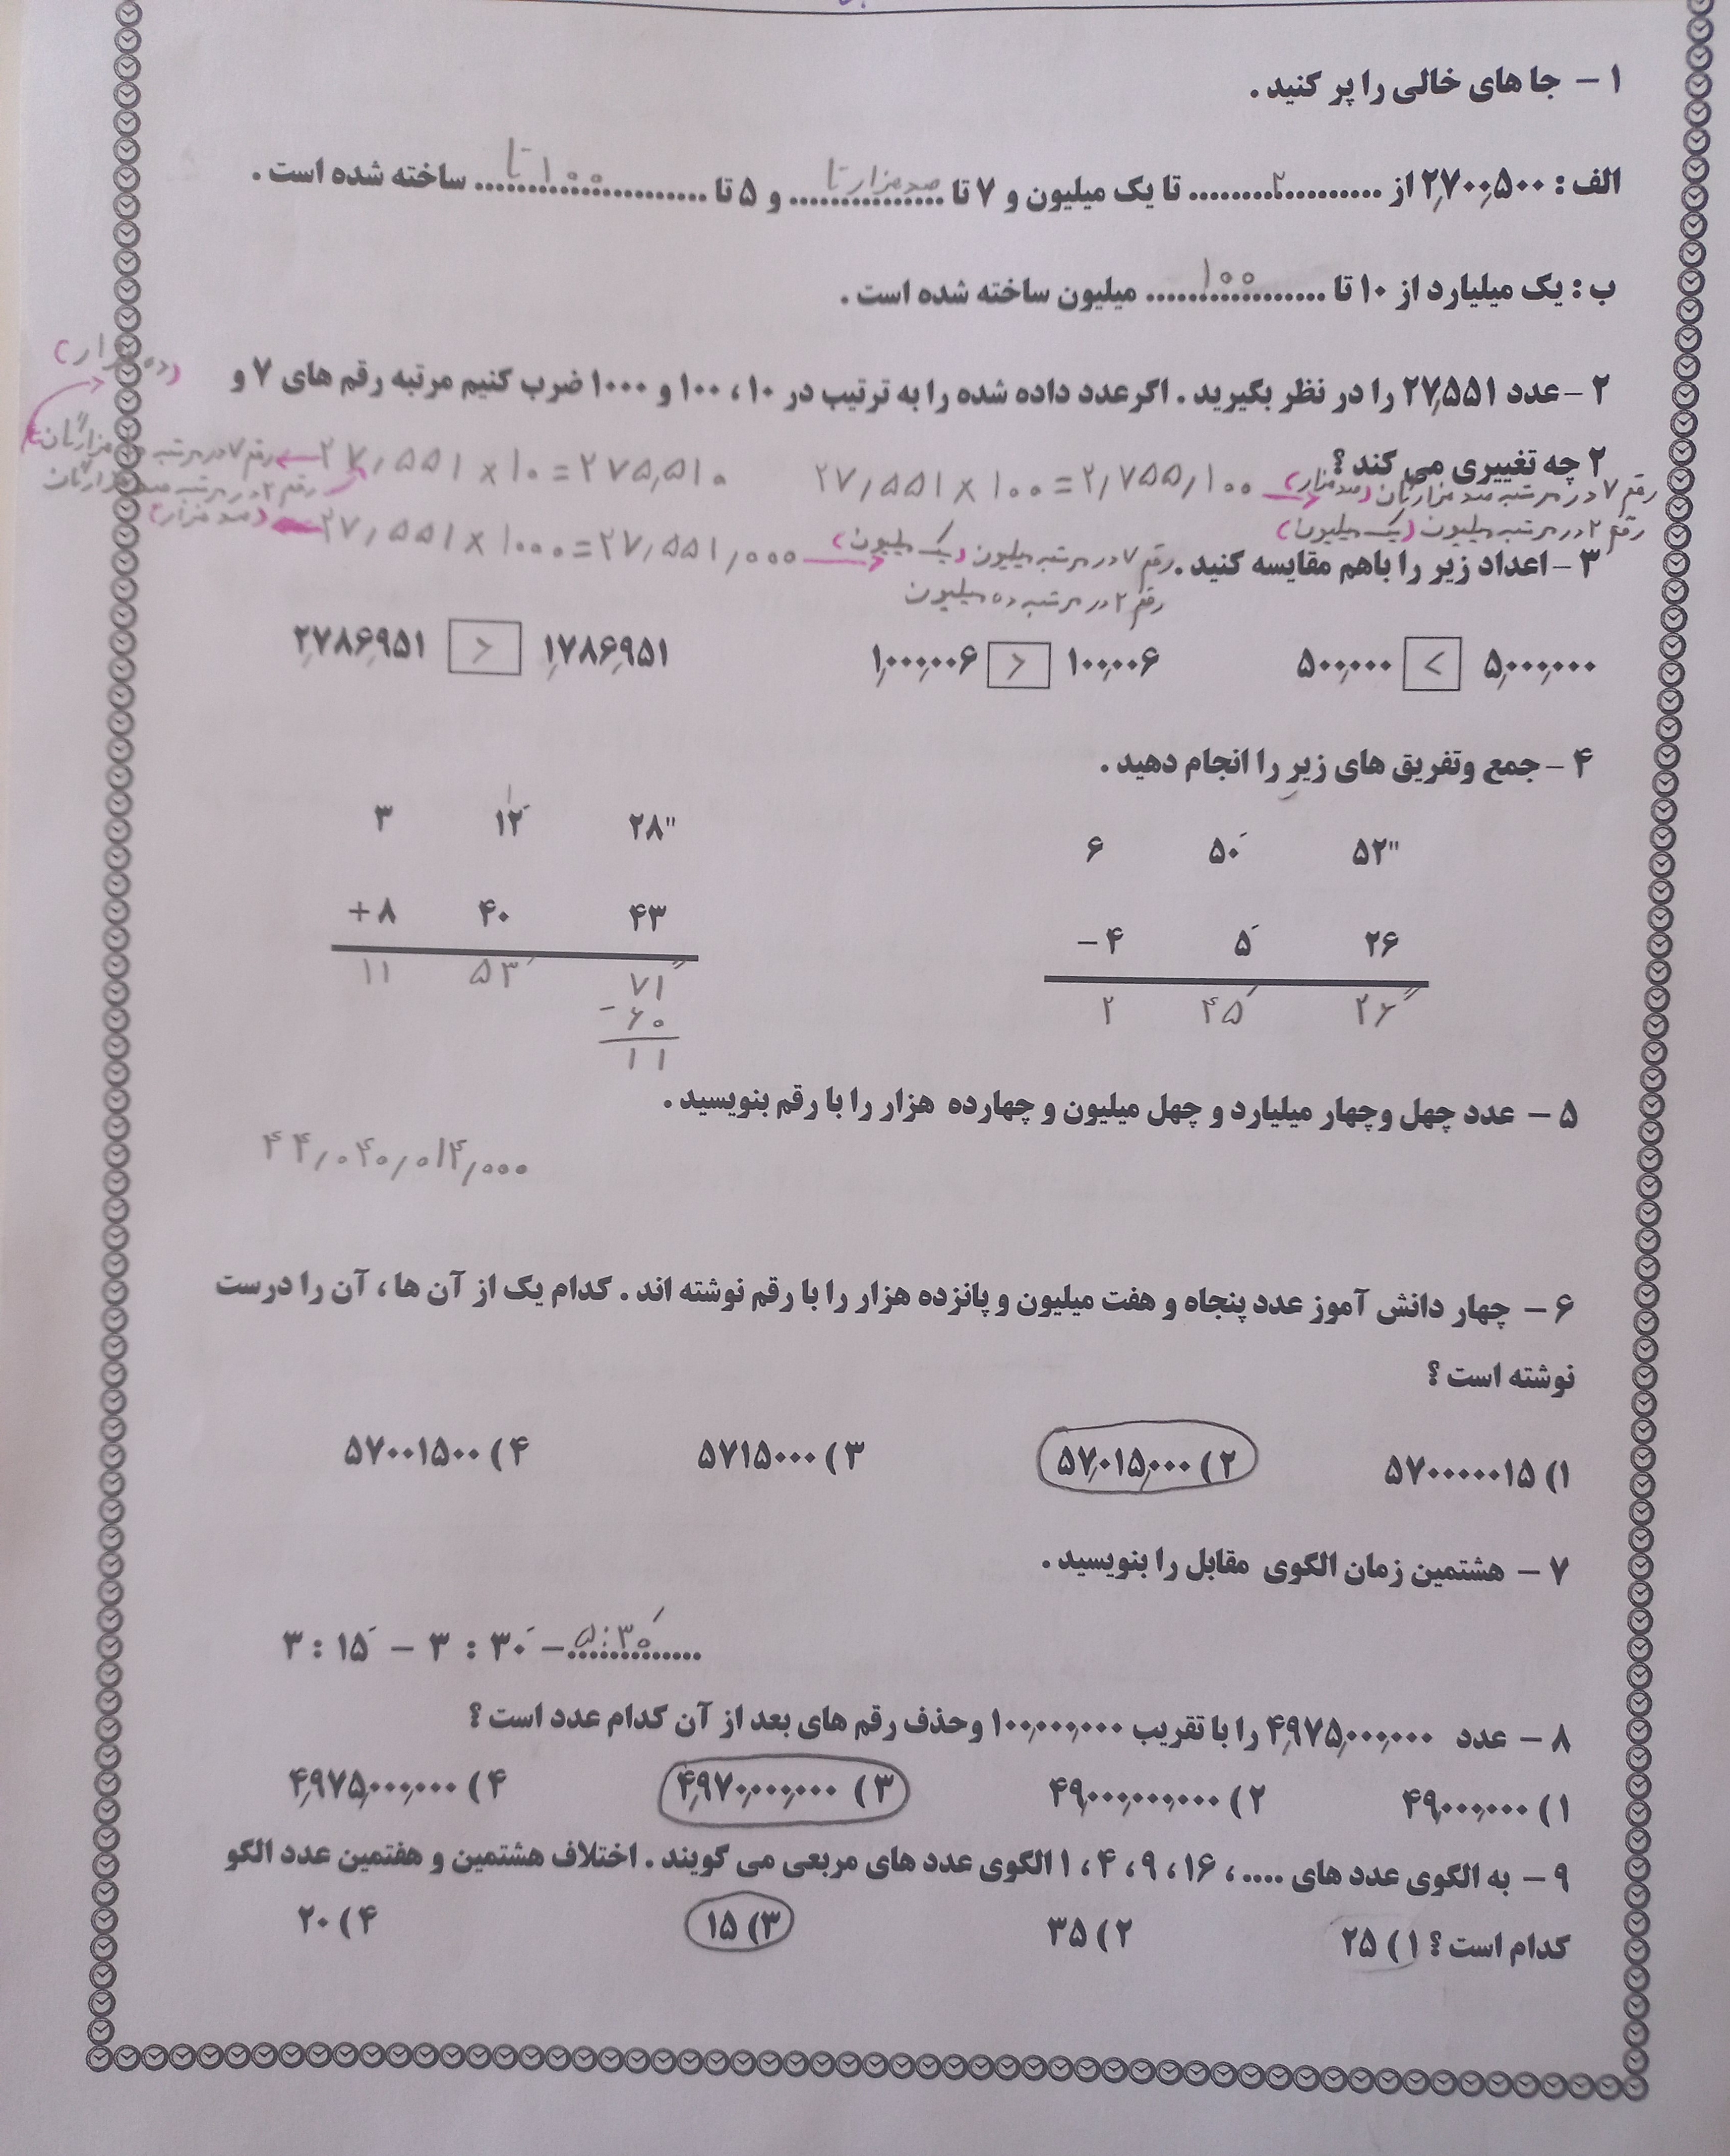 ۱ – جا های خالی را پر کنید .
الف : ۲٫۷۰۰٫۵۰۰ از .........۲......... تا یک میلیون و ۷ تا صدهزار تا و ۵ تا ۱۰۰ تا ساخته شده است .
ب : یک میلیارد از ۱۰ تا ۱۰۰ میلیون ساخته شده است .
(ده هزار)
۲ – عدد ۲۷٫۵۵۱ را در نظر بگیرید . اگر عدد داده شده را به ترتیب در ۱۰ ، ۱۰۰ و ۱۰۰۰ ضرب کنیم مرتبه رقم های ۷ و
۲ چه تغییری می کند ؟
۲۷٫۵۵۱ × ۱۰۰ = ۲٫۷۵۵٫۱۰۰ رقم ۷ در مرتبه صد هزارگان (صد هزار)
رقم ۲ در مرتبه میلیون (یک میلیون)
۲۷٫۵۵۱ × ۱۰ = ۲۷۵٫۵۱۰ رقم ۷ در مرتبه هزارگان
رقم ۲ در مرتبه صد هزارگان
(صد هزار)
۲۷٫۵۵۱ × ۱۰۰۰ = ۲۷٫۵۵۱٫۰۰۰ رقم ۷ در مرتبه میلیون (یک میلیون)
رقم ۲ در مرتبه ده میلیون
۳ – اعداد زیر را باهم مقایسه کنید .
۲٫۷۸۶٫۹۵۱ > ۱٫۷۸۶٫۹۵۱ ۱٫۰۰۰٫۰۰۶ > ۱۰۰٫۰۰۶ ۵۰۰٫۰۰۰ < ۵٫۰۰۰٫۰۰۰
۴ – جمع وتفریق های زیر را انجام دهید .
۱
۳ ۱۲′ ۲۸″ ۶ ۵۰′ ۵۲″
+ ۸ ۴۰ ۴۳ – ۴ ۵′ ۲۶
۱۱ ۵۳′ ۷۱″ ۲ ۴۵′ ۲۶″
– ۶۰
۱۱
۵ – عدد چهل وچهار میلیارد و چهل میلیون و چهارده هزار را با رقم بنویسید .
۴۴٫۰۴۰٫۰۱۴٫۰۰۰
۶ – چهار دانش آموز عدد پنجاه و هفت میلیون و پانزده هزار را با رقم نوشته اند . کدام یک از آن ها ، آن را درست
نوشته است ؟
۱) ۵۷۰۰۰۰۰۱۵ ۲) ۵۷٫۰۱۵٫۰۰۰ ۳) ۵۷۱۵۰۰۰ ۴) ۵۷۰۰۱۵۰۰
۷ – هشتمین زمان الگوی مقابل را بنویسید .
۳ : ۱۵′ – ۳ : ۳۰′ – ۵:۳۰′
۸ – عدد ۴٫۹۷۵٫۰۰۰٫۰۰۰ را با تقریب ۱۰۰٫۰۰۰٫۰۰۰ وحذف رقم های بعد از آن کدام عدد است ؟
۱) ۴۹٫۰۰۰٫۰۰۰ ۲) ۴۹٫۰۰۰٫۰۰۰٫۰۰۰ ۳) ۴٫۹۷۰٫۰۰۰٫۰۰۰ ۴) ۴٫۹۷۵٫۰۰۰٫۰۰۰
۹ – به الگوی عدد های .... ، ۱۶ ، ۹ ، ۴ ، ۱ الگوی عدد های مربعی می گویند . اختلاف هشتمین و هفتمین عدد الگو
کدام است ؟ ۱) ۲۵ ۲) ۳۵ ۳) ۱۵ ۴) ۲۰